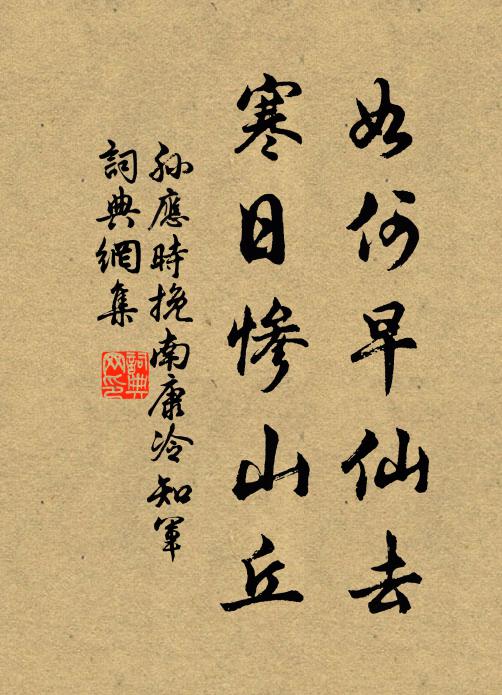 如何早仙去
寒日慘山丘
孙應時挽南康冷知軍
詞典網集
詞典网印